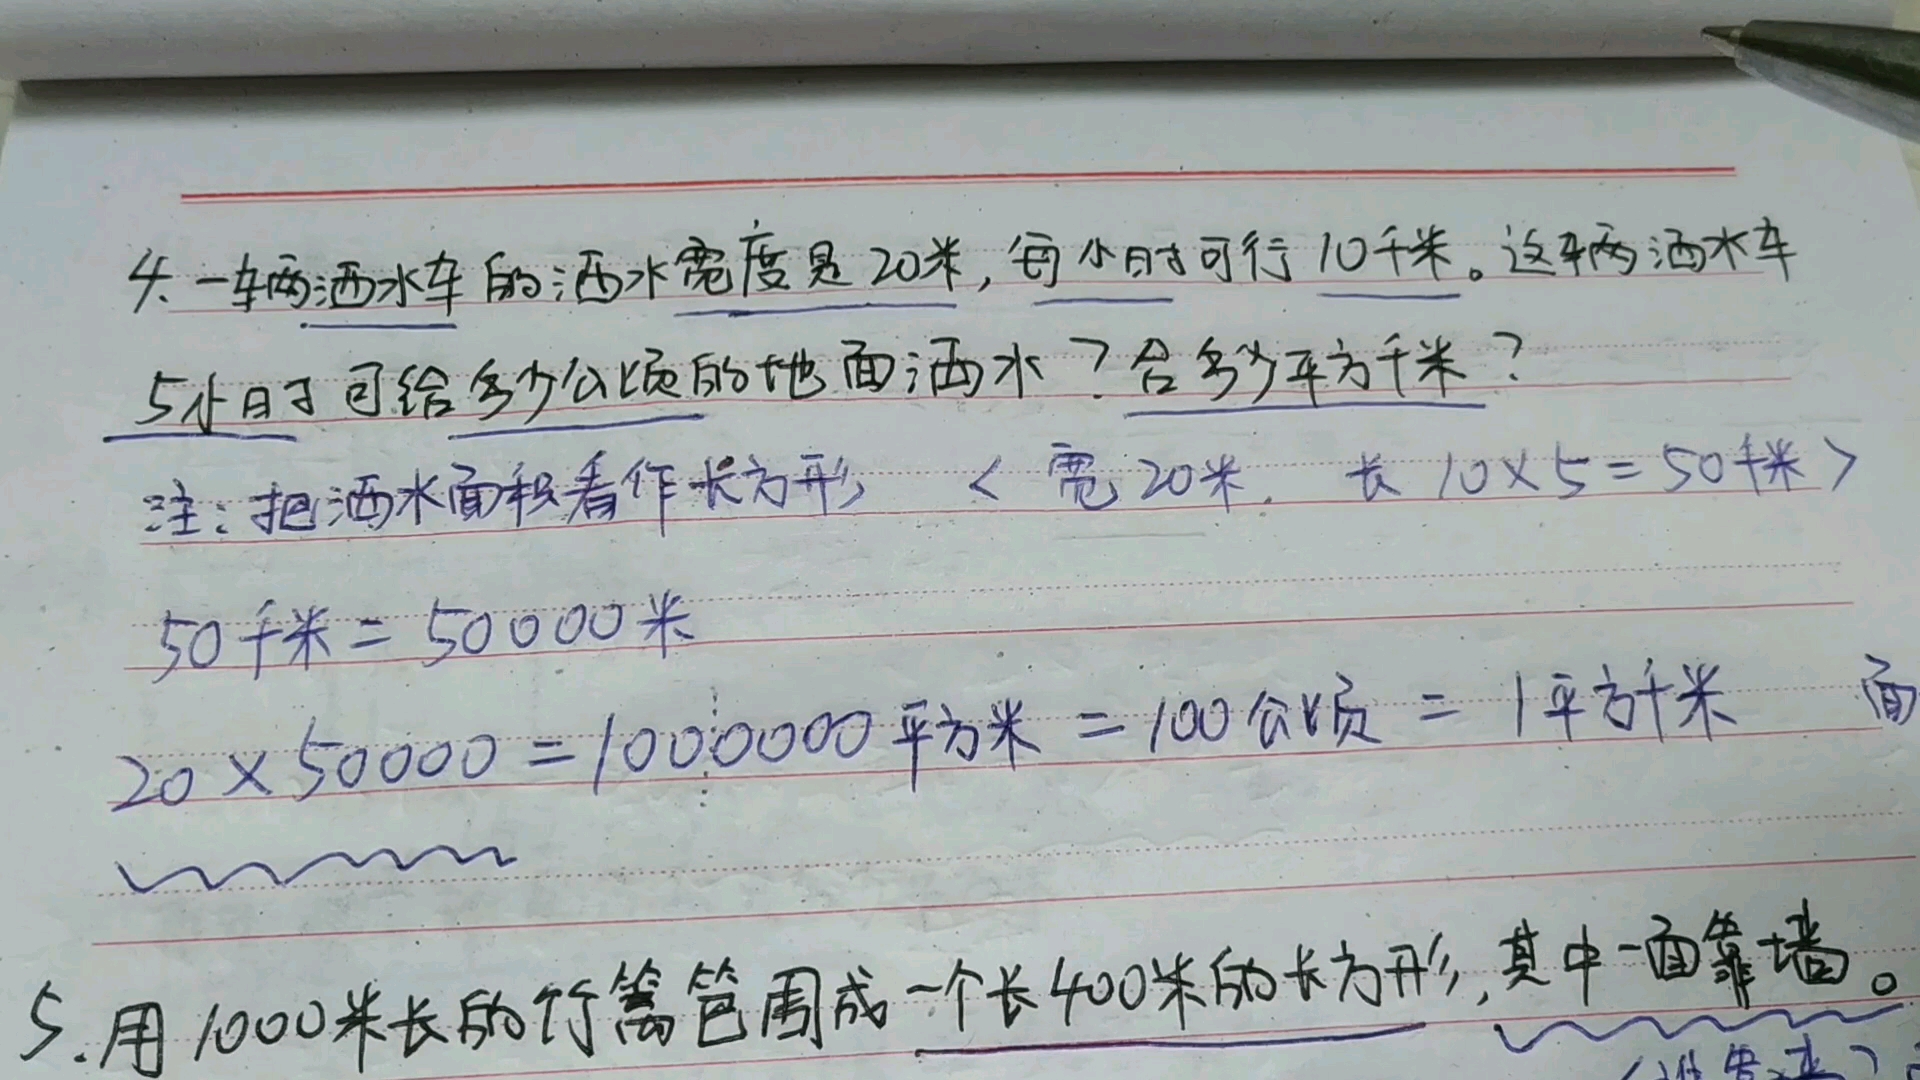 4. 一辆洒水车的洒水宽度是20米，每小时可行10千米。这辆洒水车
5小时可给多少公顷的地面洒水？合多少平方千米？
注：把洒水面积看作长方形 < 宽20米. 长 10×5=50千米>
50千米=50000米
20×50000=1000000平方米=100公顷=1平方千米 面
5. 用1000米长的竹篱笆围成一个长400米的长方形，其中一面靠墙。